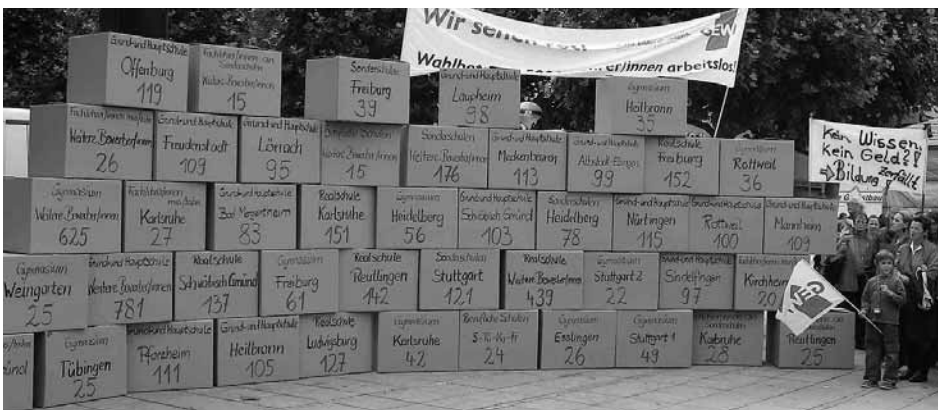 Wir sehen rot!
GEW
Wahlbe
er/innen arbeitslos!
Grund-und Hauptschule
Offenburg
119
Fachlehrer/innen an
Sonderschulen
Weitere Bewerber/innen
15
Sonderschulen
Freiburg
39
Grund-und Hauptschule
Laupheim
98
Gymnasium
Heilbronn
35
Weitere Bewerber/innen
26
Grund-und Hauptschule
Freudenstadt
109
Grund-und Hauptschule
Lörrach
95
Berufliche Schulen
Weitere Bewerber/innen
15
Sonderschulen
Weitere Bewerber/innen
176
Grund-und Hauptschule
Meckenbeuren
113
Grund-und Hauptschule
Albstadt-Ebingen
99
Realschule
Freiburg
152
Gymnasium
Rottweil
36
Kein Wissen,
kein Geld?!
⇒ Bildung zerfällt
Gymnasium
Weitere Bewerber/innen
625
Fachlehrer/innen
Karlsruhe
27
Grund-und Hauptschule
Bad Mergentheim
83
Realschule
Karlsruhe
151
Gymnasium
Heidelberg
56
Grund-und Hauptschule
Schwäbisch Gmünd
103
Sonderschulen
Heidelberg
78
Grund-und Hauptschule
Nürtingen
115
Grund-und Hauptschule
Rottweil
100
Grund-und Hauptschule
Mannheim
109
Gymnasium
Weingarten
25
Grund-und Hauptschule
Weitere Bewerber/innen
781
Realschule
Schwäbisch Gmünd
137
Gymnasium
Freiburg
61
Realschule
Reutlingen
142
Sonderschulen
Stuttgart
121
Realschule
Weitere Bewerber/innen
439
Gymnasium
Stuttgart 2
22
Grund-und Hauptschule
Sindelfingen
97
Kirchheim
20
GEW
Gymnasium
Tübingen
25
Grund-und Hauptschule
Pforzheim
111
Grund-und Hauptschule
Heilbronn
105
Realschule
Ludwigsburg
127
Gymnasium
Karlsruhe
42
Berufliche Schulen
24
Gymnasium
Esslingen
26
Gymnasium
Stuttgart 1
49
Karlsruhe
28
Reutlingen
25